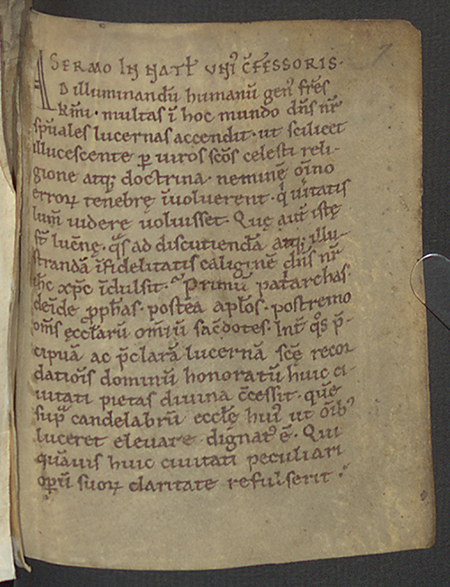 SERMO IN NATL̄ VNĪ C̄FESSORIS.
AD illuminandū humanū gen' fr̄es
kr̄mi. multas ī hoc mundo dn̄s nr̄
sp̄uales lucernas accendit. ut scilicet
illucescente p̱ uiros sc̄os celesti reli-
gione atq; doctrina. neminē oīno
errorꝝ tenebrę īuoluerent. q' ueritatis
lum̄ uidere uoluisset. Que aut̄ istę
st̄ lucernę. q̄s ad discutiendā atq; illu-
strandā īfidelitatis caliginē dn̄s nr̄
ih̄c xp̄c īdulsit. Primū patͥarchas.
deīde ꝓph̄as. postea apl̄os. postremo
om̄s ęccl̄arū om̄iū sac̄dotes. Int̄ q̄s p̄-
cipuā ac p̄clarā lucernā sc̄ę recor
dationis dominū honoratū huic ci-
uitati pietas diuina c̄cessit. quē
sup̱ candelabrū eccl̄ę hui' ut om̄ib'
luceret eleuare dignat' ē. Qui
quāuis huic ciuitati peculiari
oꝑū suoꝝ claritate refulserit.